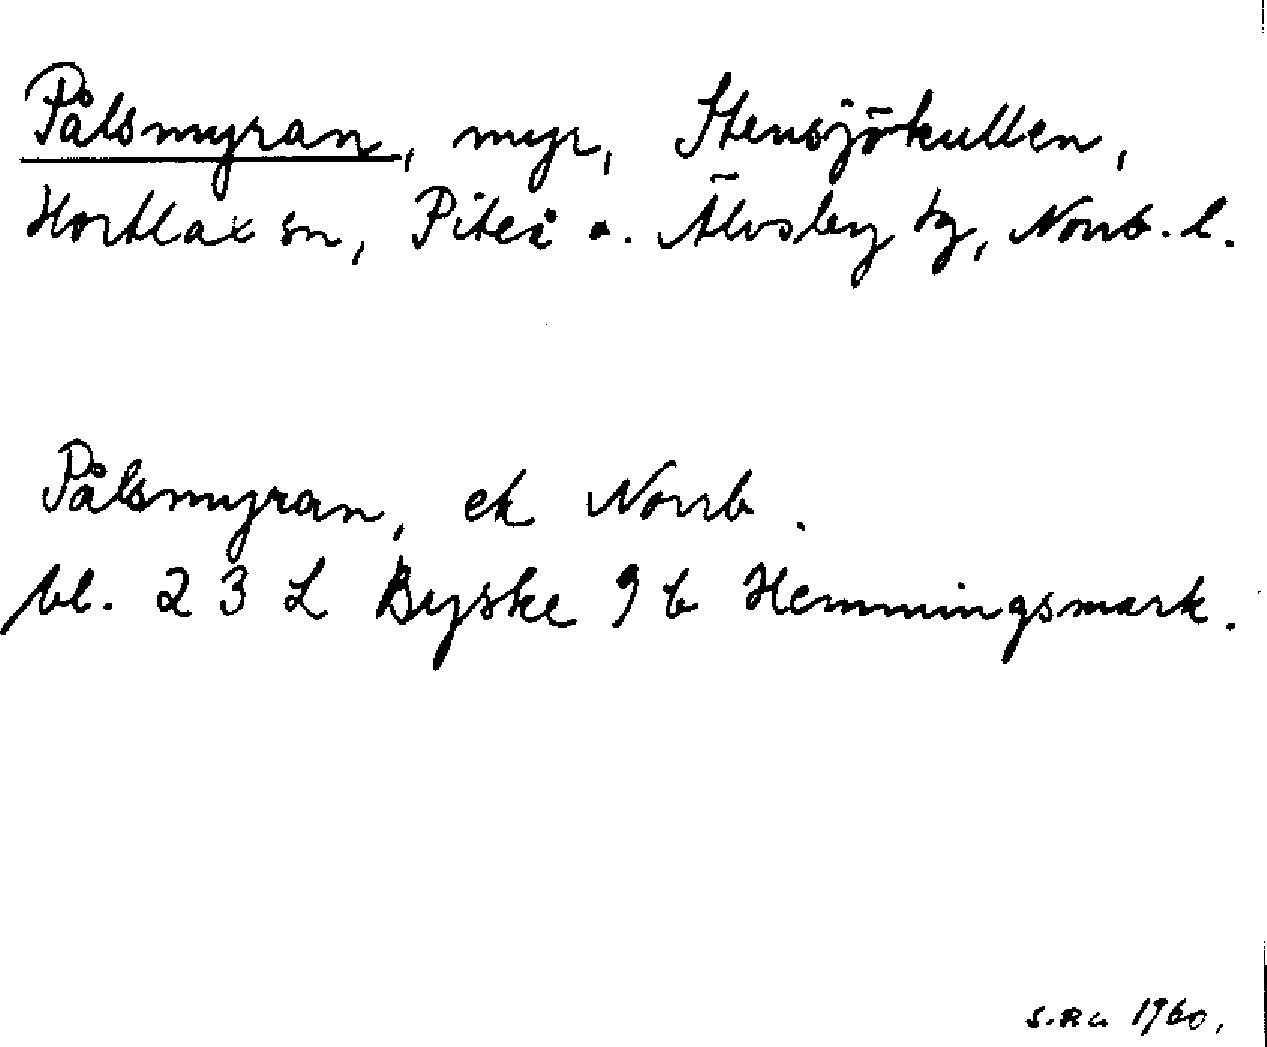 Pålsmyran, myr, Stensjökullen,
Hortlax sn, Piteå o. Älvsby tg, Norrb. l.
Pålsmyran, ek Norrb.
bl. 23 L Byske 9 b Hemmingsmark.
1960.